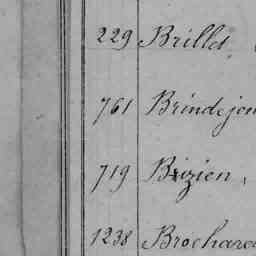 229 Brillet
761 Brindejon
719 Brizien,
1238 Brochard